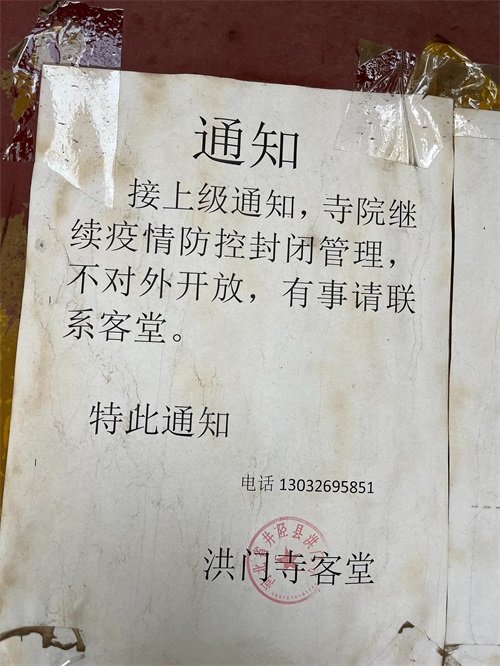 通知
接上级通知，寺院继
续疫情防控封闭管理，
不对外开放，有事请联
系客堂。
特此通知
电话 13032695851
河北省井陉县洪
洪门寺客堂